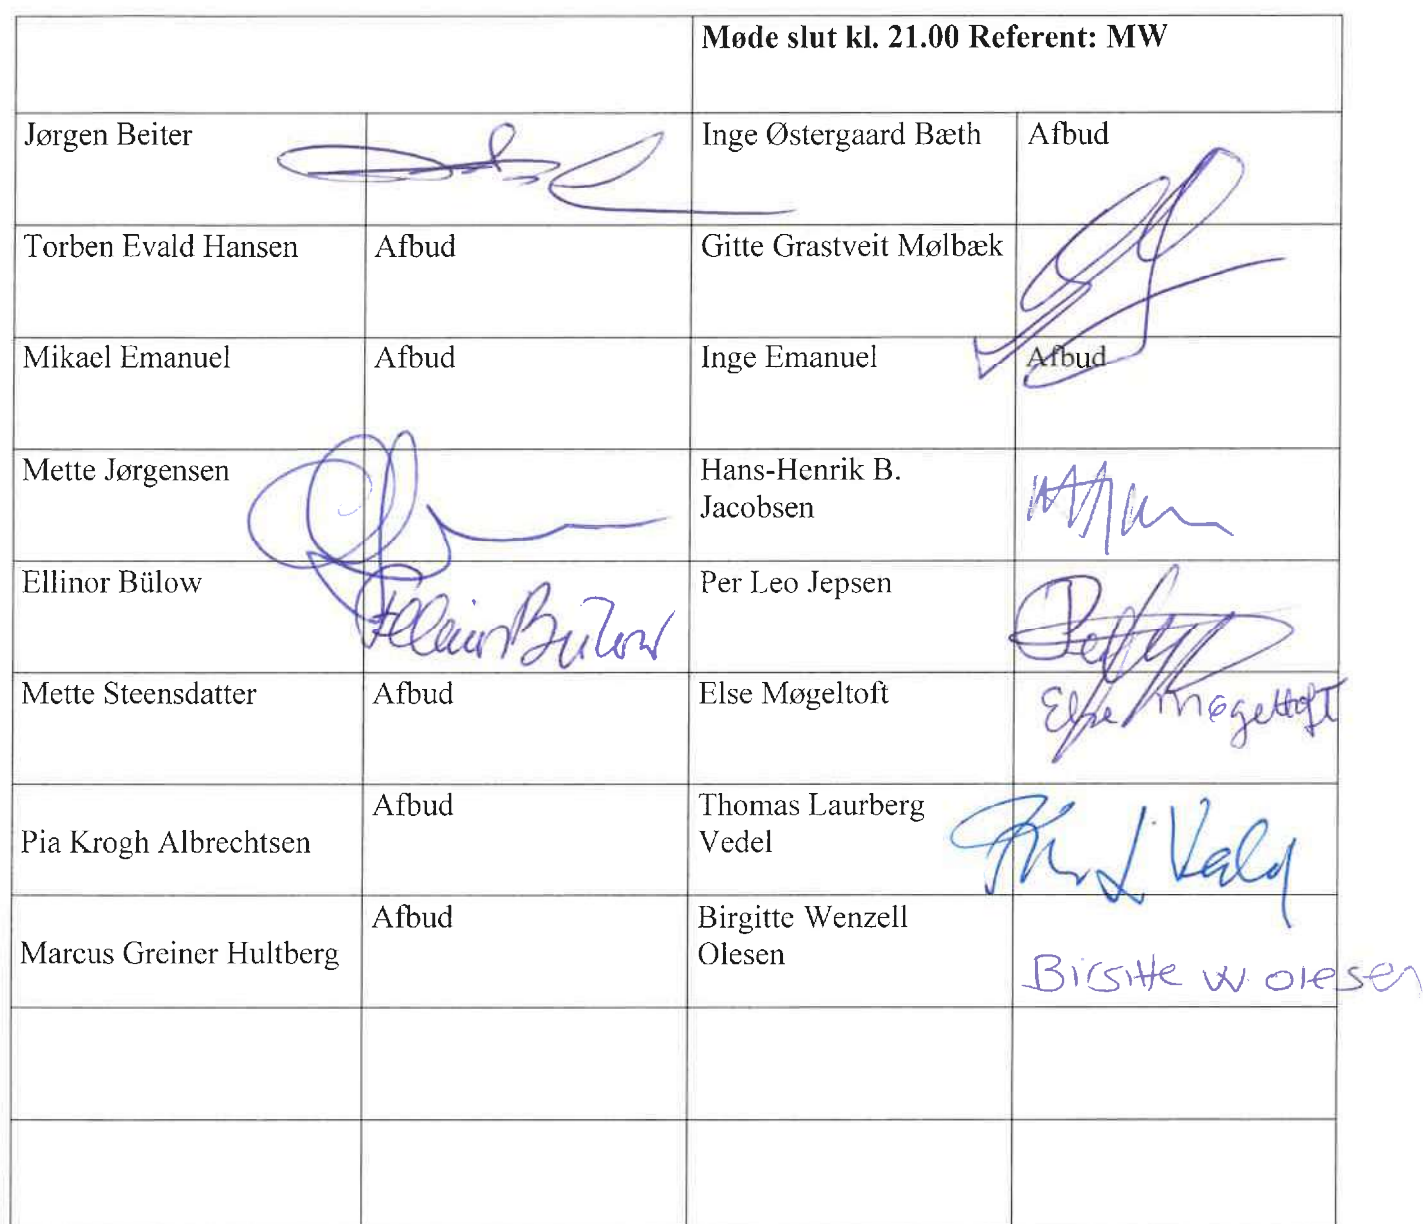 Møde slut kl. 21.00 Referent: MW
Jørgen Beiter
Inge Østergaard Bæth
Afbud
Torben Evald Hansen
Afbud
Gitte Grastveit Mølbæk
Mikael Emanuel
Afbud
Inge Emanuel
Afbud
Mette Jørgensen
Hans-Henrik B.
Jacobsen
Ellinor Bülow
Ellinor Bülow
Per Leo Jepsen
Mette Steensdatter
Afbud
Else Møgeltoft
Else Møgeltoft
Pia Krogh Albrechtsen
Afbud
Thomas Laurberg
Vedel
Marcus Greiner Hultberg
Afbud
Birgitte Wenzell
Olesen
Birgitte W Olesen